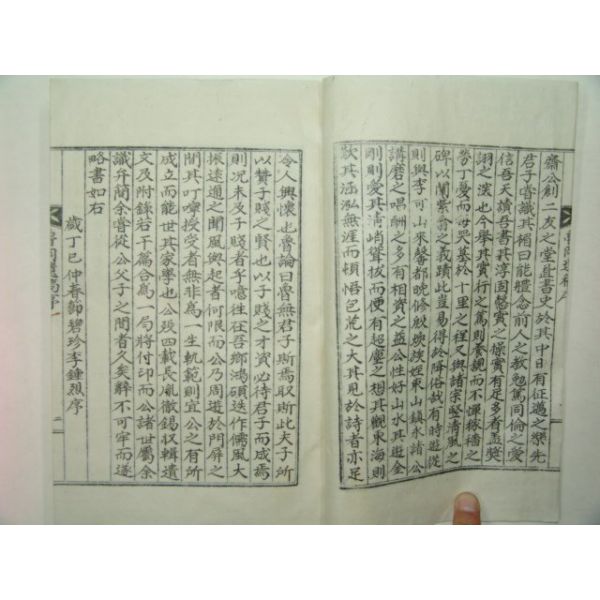 齋公創二友之堂並書史於其中日有征邁之樂先
君子嘗識其楣曰能體念前人之敎勉篤同倫之愛
信吾天讀吾書其淳固慤實之操實有足多者盖奬
詡之深也今擧其實行之篤則養親而不憚稼穡之
勞丁憂而每哭墓於十里之程又與諸宗竪淸風之
碑以闡紫翁之義蹟此豈易得於降俗哉有時遊從
則與李可山來馨都晩修殷姪東山鎭永諸公
講磨之唱酬之多有相資之益公性好山水其遊金
剛則愛其淸峭聳拔而便有超塵之想其觀東海則
歎其涵泓無涯而頓悟包荒之大其見於詩者亦足
令人興懷也魯論曰魯無君子斯焉取斯此夫子所
以贊子賤之賢也以子賤之才資必待君子而成焉
則况未及子賤者乎噫往在吾鄕鴻碩迭作儒風大
振遠邇之聞風興起者何限而公乃周遊於門屛之
間其叮嚀授受者無非爲一生軌範則宜公之有所
成立而能世其家學也公歿四載長胤徹錫収輯遺
文及附錄若干篇合爲一局將付印而公諸世屬余
識弁簡余嘗從公父子之間者久矣辭不可牢而遂
略書如右
歲丁巳仲春節碧珍李鍾烈序